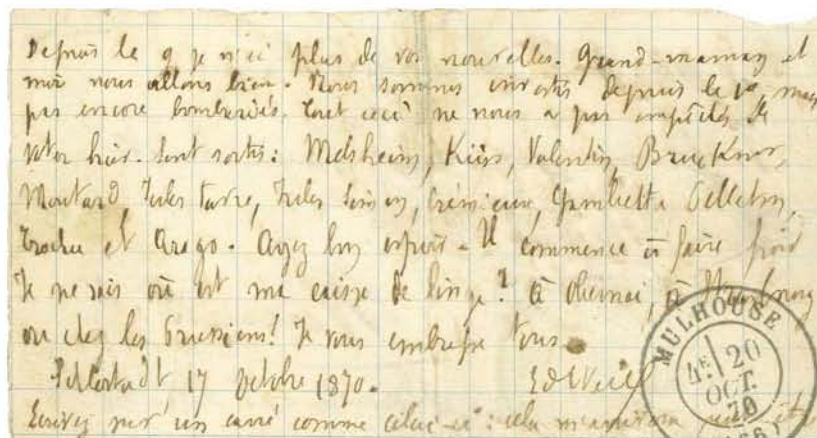 Depuis le 9 je n'ai plus de vos nouvelles. Grand-maman et
moi nous allons bien. Nous sommes investis depuis le 10, mais
pas encore bombardés. Tout ceci ne nous a pas empêchés de
voter hier. Sont sortis: Melsheim, Küss, Valentin, Bruckner,
Jules Favre, Jules Simon, Crémieux, Gambetta Pelletan,
Trochu et Arago. Ayez bon espoir - Il commence à faire froid
Je ne sais où est ma caisse de linge? à Obernai, à Strasbourg
ou chez les Prussiens! Je vous embrasse tous.
Schlestadt, 17 octobre 1870. Ed Weill
Ecrivez sur un carré comme celui-ci: cela
MULHOUSE
4E 20
OCT.
70